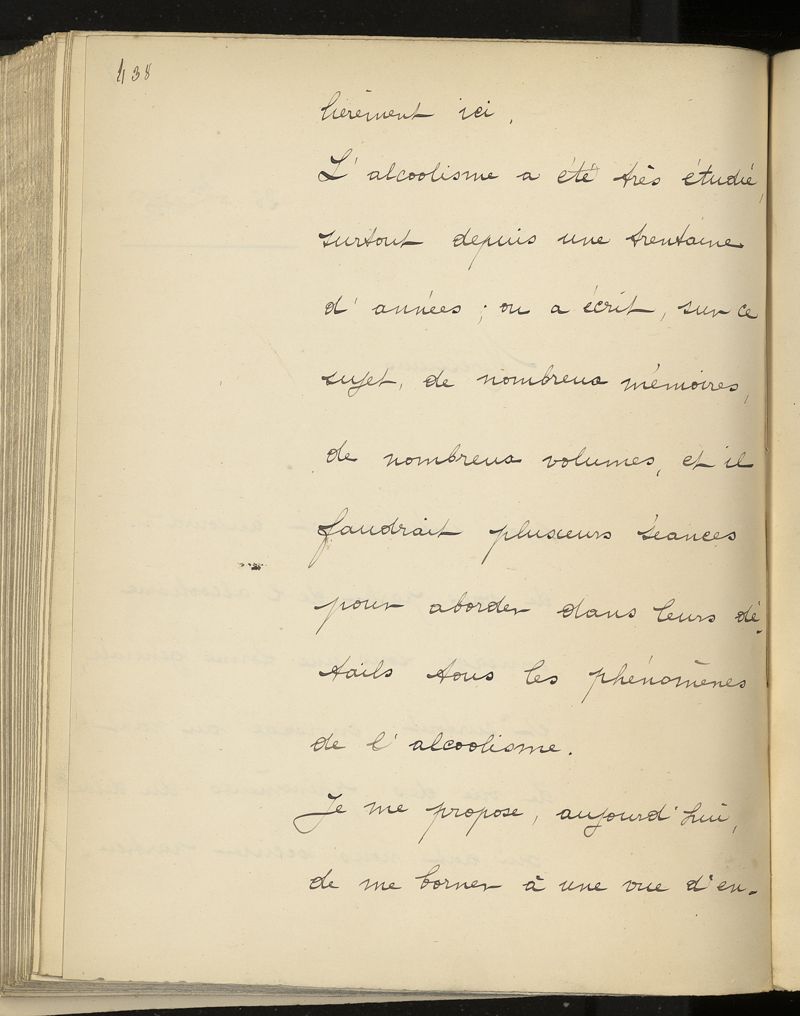 438
lièrement ici.
L'alcoolisme a été très étudié,
surtout depuis une trentaine
d'années ; on a écrit, sur ce
sujet, de nombreux mémoires,
de nombreux volumes, et il
faudrait plusieurs séances
pour aborder dans leurs dé-
tails tous les phénomènes
de l'alcoolisme.
Je me propose, aujourd'hui,
de me borner à une vue d'en-